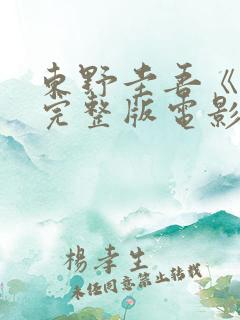 東野圭吾《
完整版電影
楊幸生
未经同意禁止转载